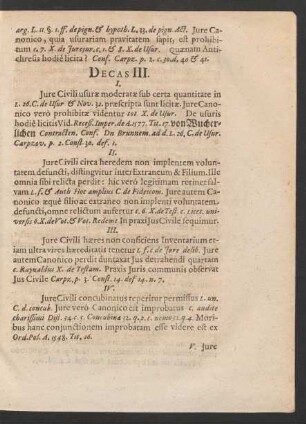 arg. L. 11. §. 1. ff. de pign. & hypoth. L. 33. de pign. Act. Jure Ca-
nonico, quia usurariam pravitatem sapit, est prohibi-
tum c. 7. X. de Jurejur. c. 1. & 8. X. de Usur. Quænam Anti-
chresis hodiè licita? Conf. Carpz. p. 2. c. 30. d. 40 & 41.
DECAS III.
I.
Jure Civili usuræ moderatæ sub certa quantitate in
L. 26. C. de Usur & Nov. 32. præscripta sunt licitæ. Jure Cano-
nico verò prohibitæ videntur tot. X. de Usur. De usuris
hodiè licitis Vid. Recess. Imper. de A. 1577. Tit. 17. von Wucher-
lichen Contracten. Conf. Dn Brunnem. ad d. L. 26. C. de Usur.
Carpzov. p. 2. Const. 30. def. 1.
II.
Jure Civili circa heredem non implentem volun-
tatem, defuncti, distingvitur inter Extraneum & Filium. Ille
omnia sibi relicta perdit: hic verò legitimam retinet sal-
vam l. f. & Auth Hoc amplius C. de Fideicom. Jure autem Ca-
nonico æquè filio ac extraneo non implenti voluntatem,
defuncti, omne relictum aufertur c. 6. X. de Test. c. 1. inst. uni-
versis 6. X. de Vot. & Vot. Redemt. In praxi Jus Civile sequimur.
III.
Jure Civili hæres non conficiens Inventarium et-
iam ultra vires hæreditatis tenetur l. f. C. de Jure delib. Jure
autem Canonico perdit duntaxat Jus detrahendi quartam
c. Raynaldus X. de Testam. Praxis Juris communis observat
Jus Civile Carpz. p. 3. Const. 14. def 14. n. 7.
IV.
Jure Civili concubinatus reperitur permissus t. un.
C. d. concub. Jure verò Canonico est improbatus c. audite
charissimi Dist. 34. c. 5. Concubina 32. q. 2. c. nemo 32. q. 4. Mori-
bus hanc conjunctionem improbatam esse videre est ex
Ord. Pol. A. 1548. Tit. 26.
V. Jure